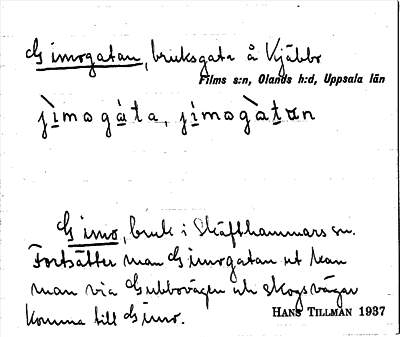 Gimogatan, bruksgata å Kjäbbo
Films s:n, Olands h:d, Uppsala län
jìmogàta, jìmogàtan
Gimo, bruk i Skäfthammars sn.
Fortsätter man Gimogatan ut kan
man via Gubbovägen och skogsvägar
komma till Gimo.
HANS TILLMAN 1937